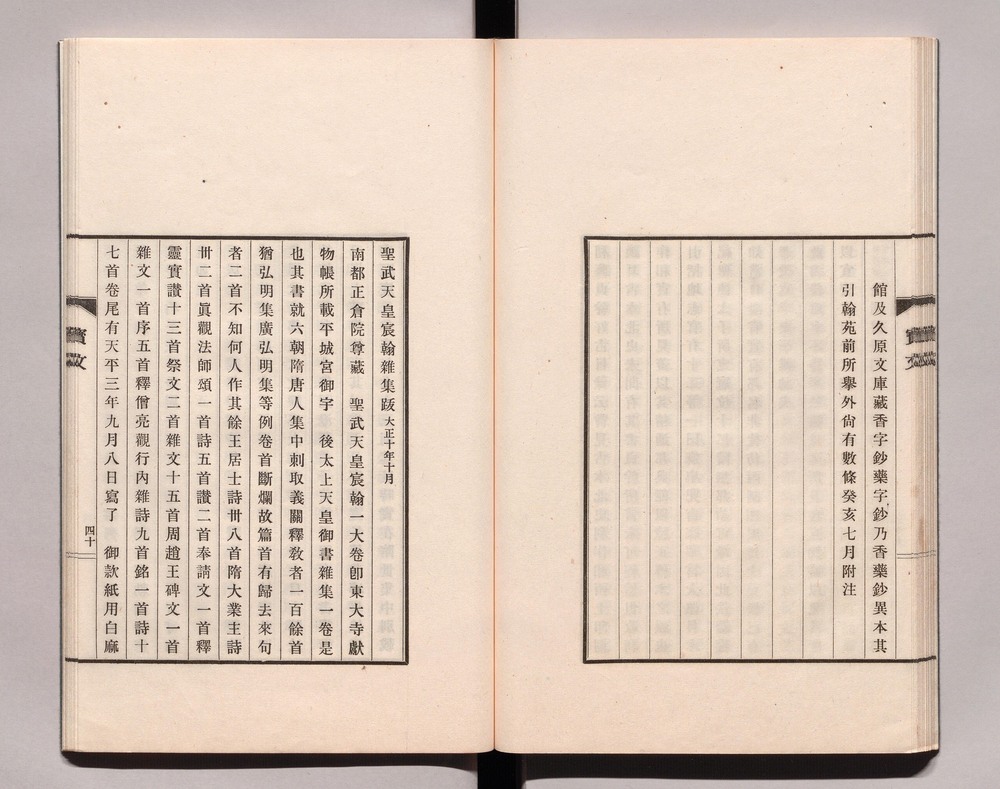 館及久原文庫藏香字鈔藥字鈔乃香藥鈔異本其
引翰苑前所擧外尙有數條癸亥七月附注
聖武天皇宸翰雜集跋大正十年十月
南都正倉院尊藏　聖武天皇宸翰一大卷卽東大寺獻
物帳所載平城宮御宇　後太上天皇御書雜集一卷是
也其書就六朝隋唐人集中刺取義關釋敎者一百餘首
猶弘明集廣弘明集等例卷首斷爛故篇首有歸去來句
者二首不知何人作其餘王居士詩卅八首隋大業主詩
卅二首眞觀法師頌一首詩五首讃二首奉請文一首釋
靈實讃十三首祭文二首雜文十五首周趙王碑文一首
雜文一首序五首釋僧亮觀行內雜詩九首銘一首詩十
七首卷尾有天平三年九月八日寫了　御款紙用白麻
四十